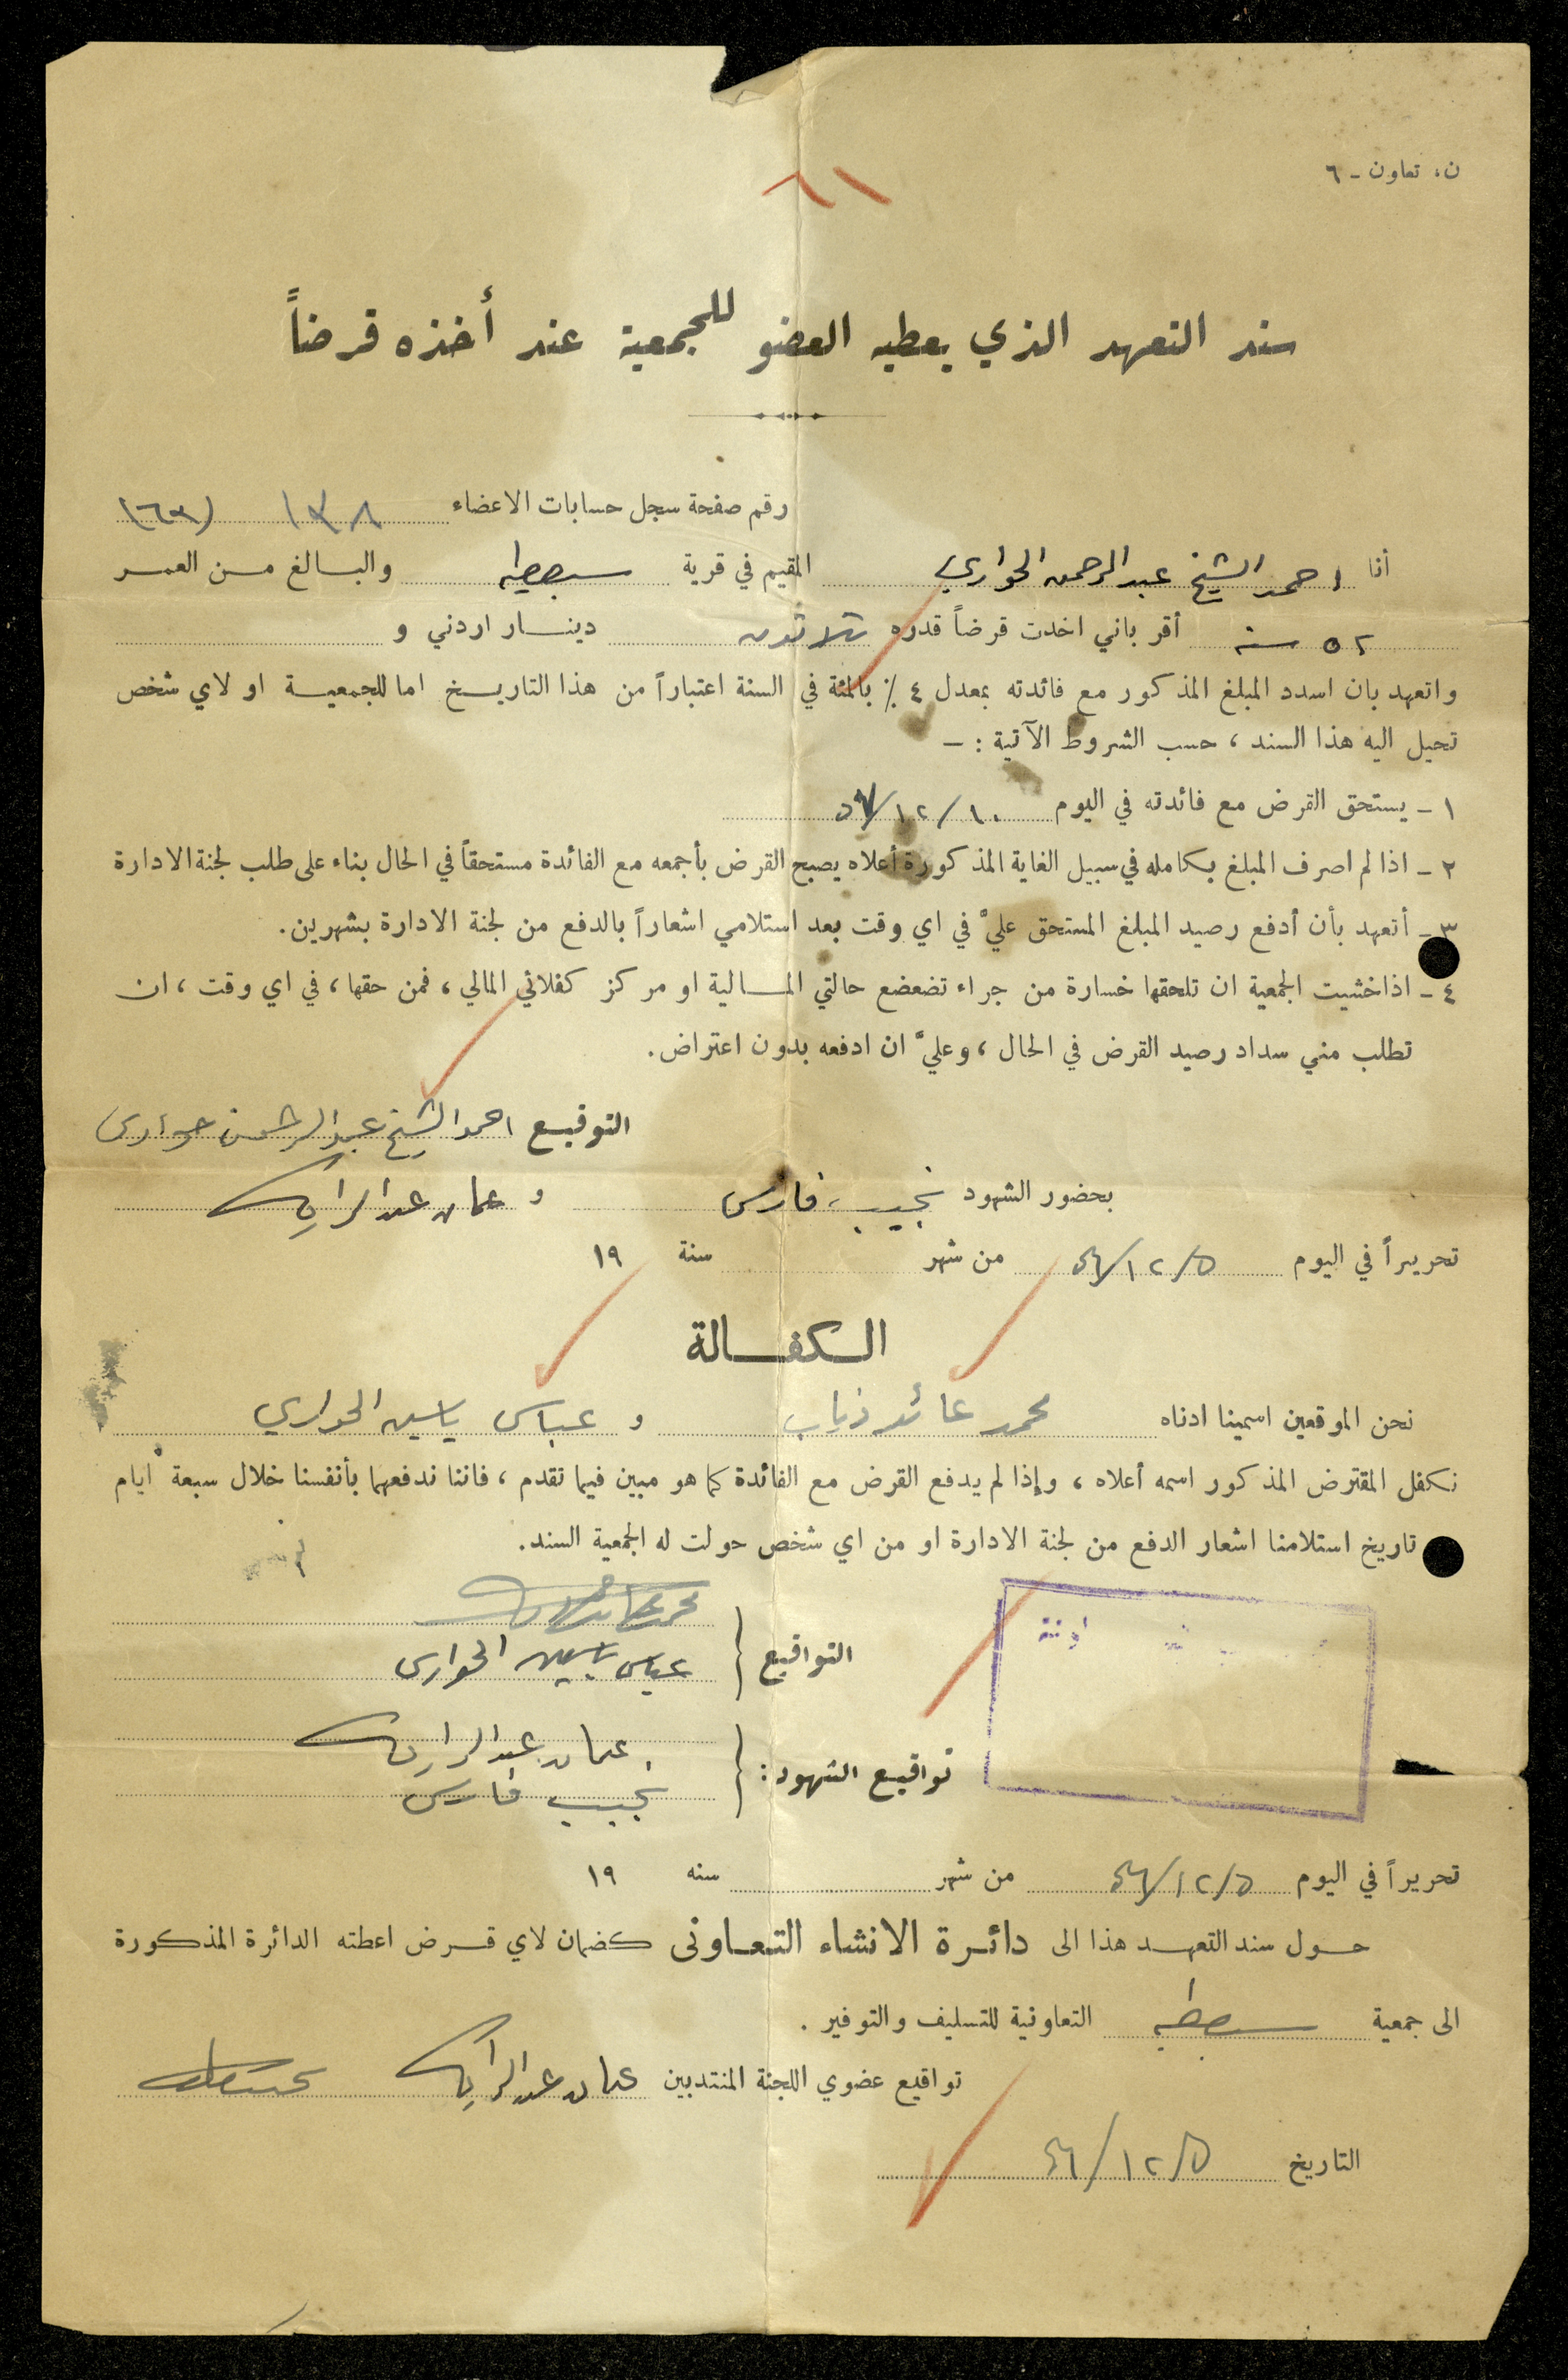 ن، تعاون - ٦
٦١
سند التعهد الذي يعطيه العضو للجمعية عند أخذه قرضاً
رقم صفحة سجل حسابات الاعضاء ١٣٨ (١٦٣)
أنا احمد الشيخ عبد الرحمن الحواري المقيم في قرية سبصطيه والبالغ من العمر
٥٢ سنة أقر باني اخذت قرضاً قدره ثلاثون دينار اردني و
واتعهد بان اسدد المبلغ المذكور مع فائدته بمعدل ٤ ٪ بالمئة في السنة اعتباراً من هذا التاريخ اما للجمعية او لاي شخص
تحيل اليه هذا السند ، حسب الشروط الآتية : -
١ - يستحق القرض مع فائدته في اليوم ١٠/١٢/٥٧
٢ - اذا لم اصرف المبلغ بكامله في سبيل الغاية المذكورة أعلاه يصبح القرض بأجمعه مع الفائدة مستحقاً في الحال بناء على طلب لجنة الادارة
٣ - أتعهد بأن أدفع رصيد المبلغ المستحق عليَّ في اي وقت بعد استلامي اشعاراً بالدفع من لجنة الادارة بشهرين.
٤ - اذا خشيت الجمعية ان تلحقها خسارة من جراء تضعضع حالتي المالية او مركز كفلائي المالي ، فمن حقها ، في اي وقت ، ان
تطلب مني سداد رصيد القرض في الحال ، وعليَّ ان ادفعه بدون اعتراض.
التوقيع احمد الشيخ عبد الرحمن حواري
بحضور الشهود نجيب فارس و عثمان عبد الرازق
تحريراً في اليوم ٥/١٢/٥٦ من شهر سنة ١٩
الكفالة
نحن الموقعين اسمينا ادناه محمد عائد ذياب و عباس ياسين الحواري
نكفل المقترض المذكور اسمه أعلاه ، وإذا لم يدفع القرض مع الفائدة كما هو مبين فيما تقدم ، فاننا ندفعهما بأنفسنا خلال سبعة ايام
تاريخ استلامنا اشعار الدفع من لجنة الادارة او من اي شخص حولت له الجمعية السند.
التواقيع
عباس ياسين الحواري
تواقيع الشهود : عثمان عبد الرازق
نجيب فارس
تحريراً في اليوم ٥/١٢/٥٦ من شهر سنه ١٩
حول سند التعهد هذا الى دائرة الانشاء التعاونى كضمان لاي قرض اعطته الدائرة المذكورة
الى جمعية سبصطيه التعاونية للتسليف والتوفير .
تواقيع عضوي اللجنة المنتدبين عثمان عبد الرازق
التاريخ ٥/١٢/٥٦